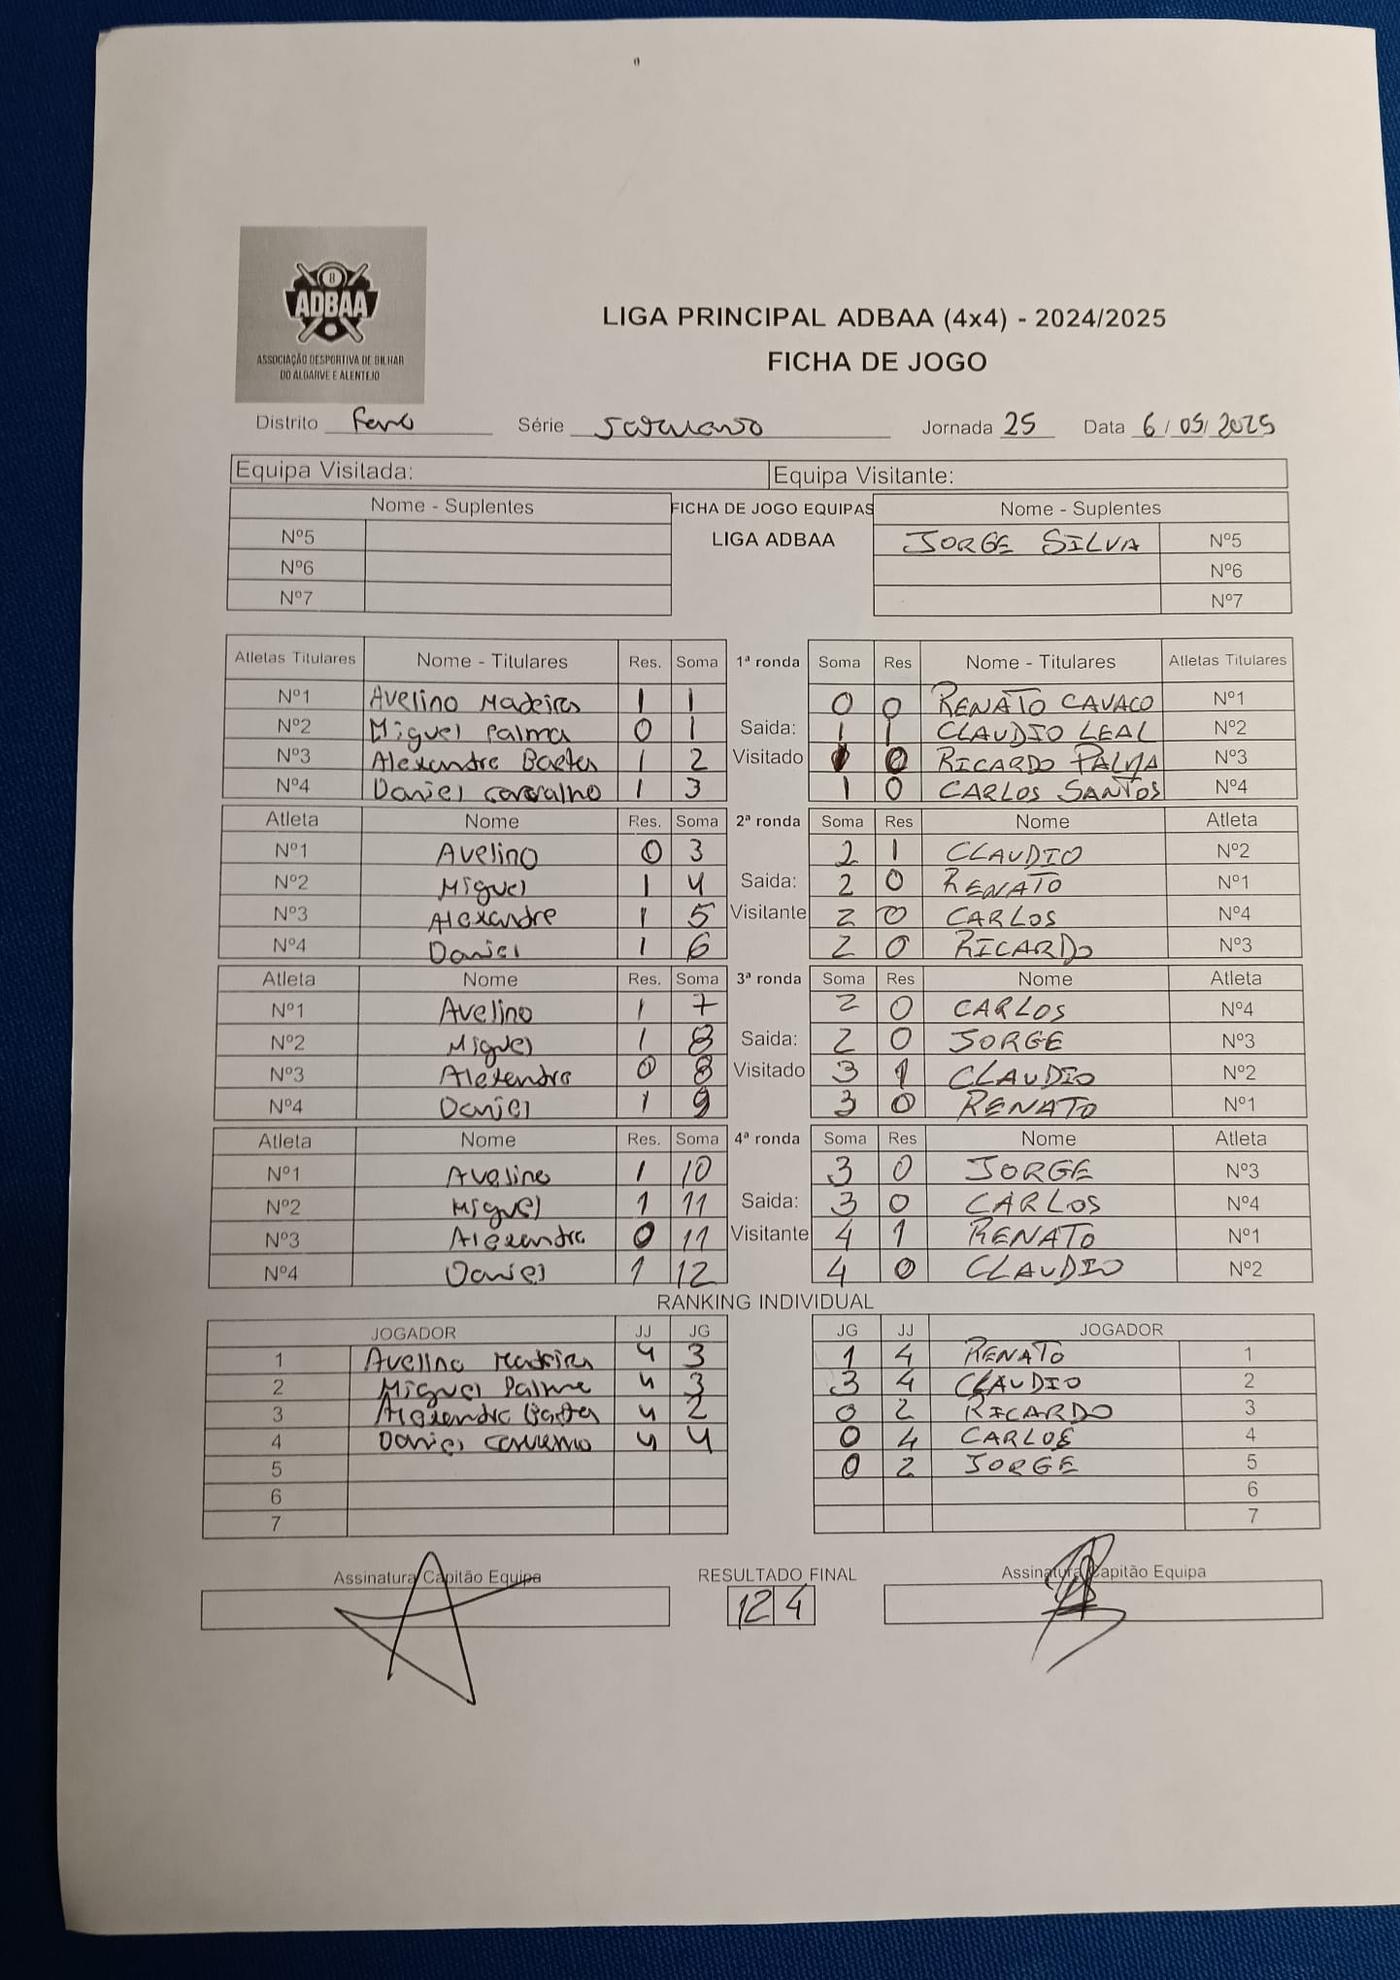 8
ADBAA
ASSOCIAÇÃO DESPORTIVA DE BILHAR
DO ALGARVE E ALENTEJO
LIGA PRINCIPAL ADBAA (4x4) - 2024/2025
FICHA DE JOGO
Distrito Faro Série Jornada 25 Data 6 / 05 / 2025
Equipa Visitada: Equipa Visitante:
Nome - Suplentes FICHA DE JOGO EQUIPAS Nome - Suplentes
Nº5 LIGA ADBAA JORGE SILVA Nº5
Nº6 Nº6
Nº7 Nº7
Atletas Titulares Nome - Titulares Res. Soma 1ª ronda Soma Res Nome - Titulares Atletas Titulares
Nº1 Avelino Madeira 1 1 0 0 RENATO CAVACO Nº1
Nº2 Miguel Palma 0 1 Saida: 1 1 CLAUDIO LEAL Nº2
Nº3 Alexandre 1 2 Visitado 1 0 RICARDO PALMA Nº3
Nº4 Daniel Carvalho 1 3 1 0 CARLOS SANTOS Nº4
Atleta Nome Res. Soma 2ª ronda Soma Res Nome Atleta
Nº1 Avelino 0 3 2 1 CLAUDIO Nº2
Nº2 Miguel 1 4 Saida: 2 0 RENATO Nº1
Nº3 Alexandre 1 5 Visitante 2 0 CARLOS Nº4
Nº4 Daniel 1 6 2 0 RICARDO Nº3
Atleta Nome Res. Soma 3ª ronda Soma Res Nome Atleta
Nº1 Avelino 1 7 2 0 CARLOS Nº4
Nº2 Miguel 1 8 Saida: 2 0 JORGE Nº3
Nº3 Alexandre 0 8 Visitado 3 1 CLAUDIO Nº2
Nº4 Daniel 1 9 3 0 RENATO Nº1
Atleta Nome Res. Soma 4ª ronda Soma Res Nome Atleta
Nº1 Avelino 1 10 3 0 JORGE Nº3
Nº2 Miguel 1 11 Saida: 3 0 CARLOS Nº4
Nº3 Alexandre 0 11 Visitante 4 1 RENATO Nº1
Nº4 Daniel 1 12 4 0 CLAUDIO Nº2
RANKING INDIVIDUAL
JOGADOR JJ JG JG JJ JOGADOR
1 Avelino Madeira 4 3 1 4 RENATO 1
2 Miguel Palma 4 3 3 4 CLAUDIO 2
3 Alexandre 4 2 0 2 RICARDO 3
4 Daniel Carvalho 4 4 0 4 CARLOS 4
5 0 2 JORGE 5
6 6
7 7
Assinatura Capitão Equipa RESULTADO FINAL Assinatura Capitão Equipa
12 4